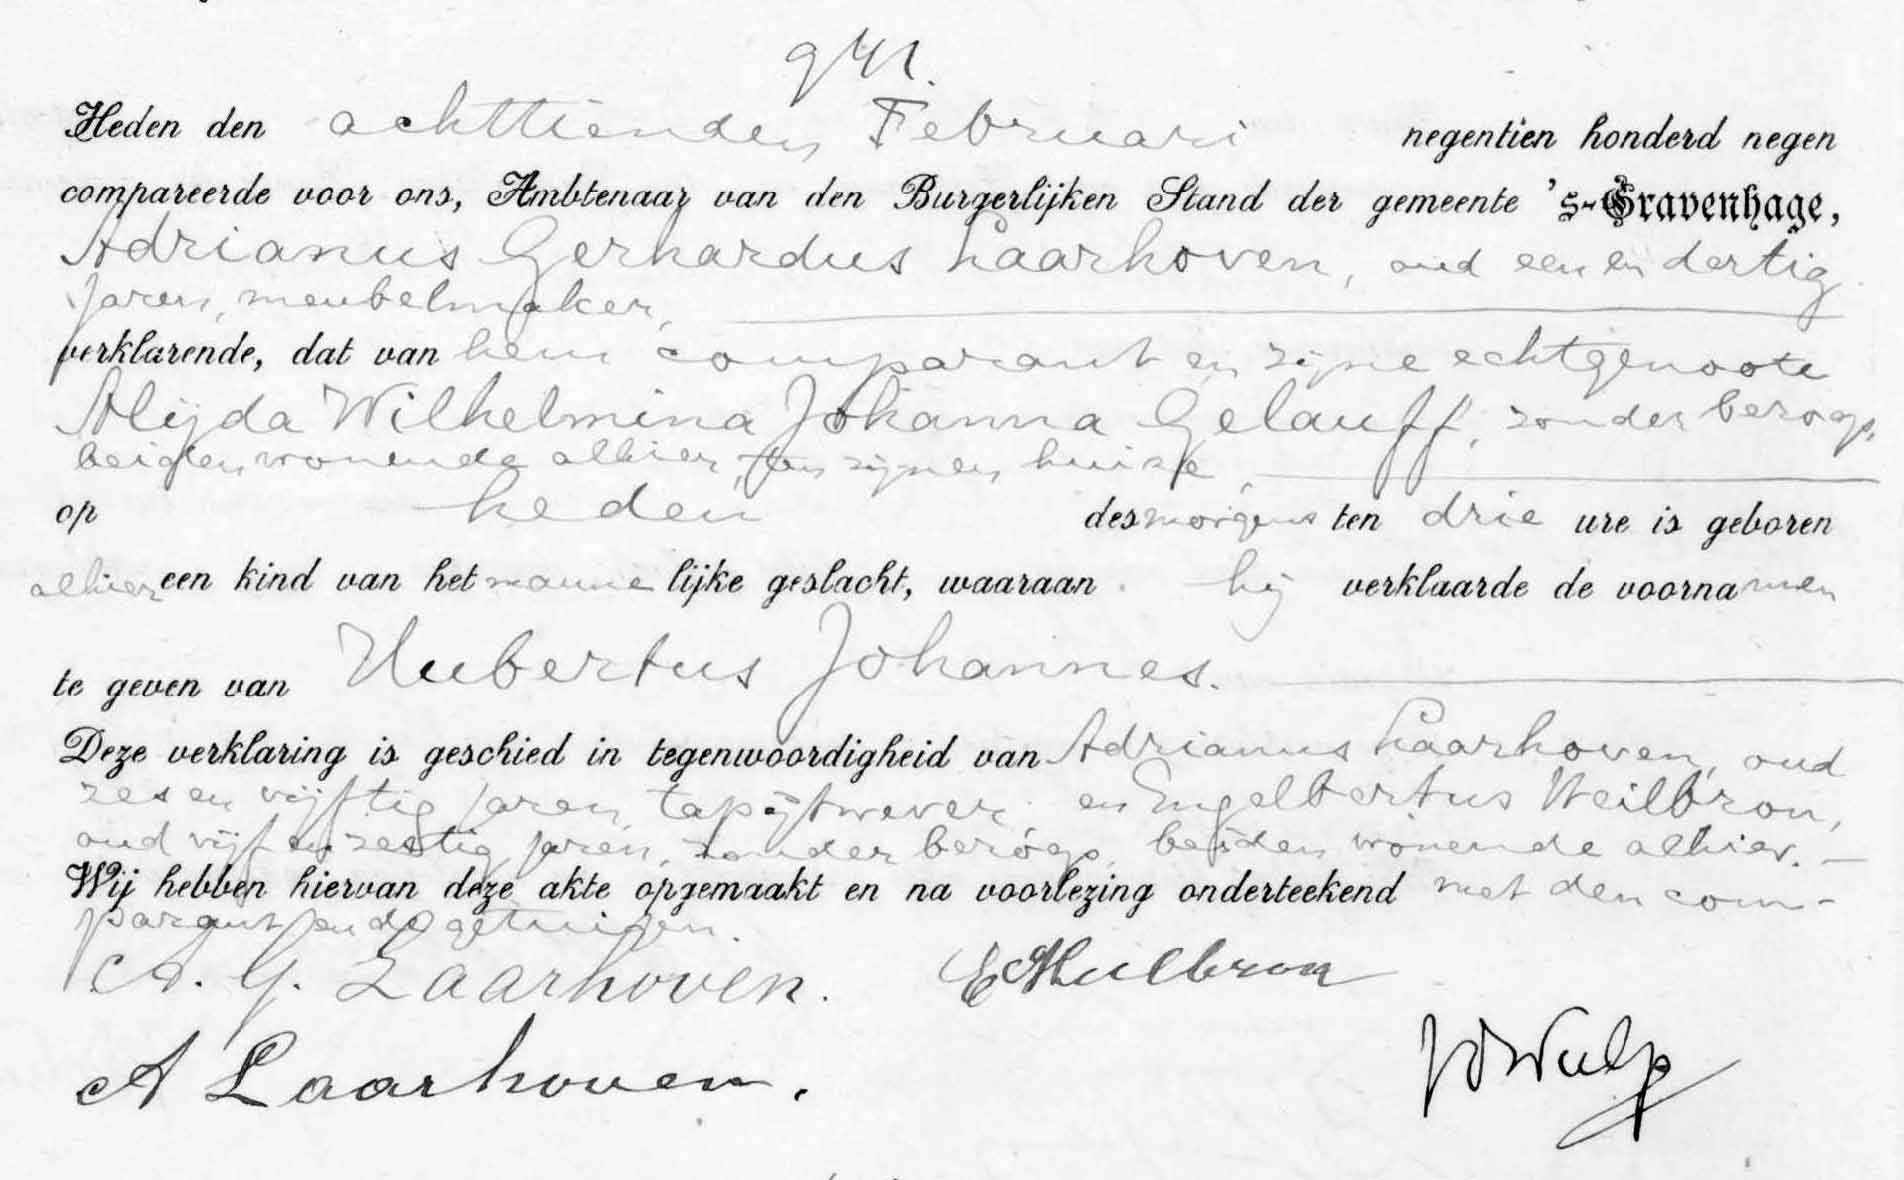 941.
Heden den achttienden Februari negentien honderd negen
compareerde voor ons, Ambtenaar van den Burgerlijken Stand der gemeente 's-Gravenhage,
Adrianus Gerhardus Laarhoven, oud een en dertig
jaren, meubelmaker,
verklarende, dat van hem comparant en zijne echtgenoote
Alijda Wilhelmina Johanna Gelauff, zonder beroep,
beiden wonende alhier, ten zijnen huize,
op heden des morgens ten drie ure is geboren
alhier een kind van het mannelijke geslacht, waaraan hij verklaarde de voornamen
te geven van Hubertus Johannes.
Deze verklaring is geschied in tegenwoordigheid van Adrianus Laarhoven, oud
zes en vijftig jaren, tapijtwever, en Engelbertus Heilbron,
oud vijf en zestig jaren, zonder beroep, beiden wonende alhier. —
Wij hebben hiervan deze akte opgemaakt en na voorlezing onderteekend met den com-
parant en de getuigen.
A. G. Laarhoven. E Heilbron
A Laarhoven.